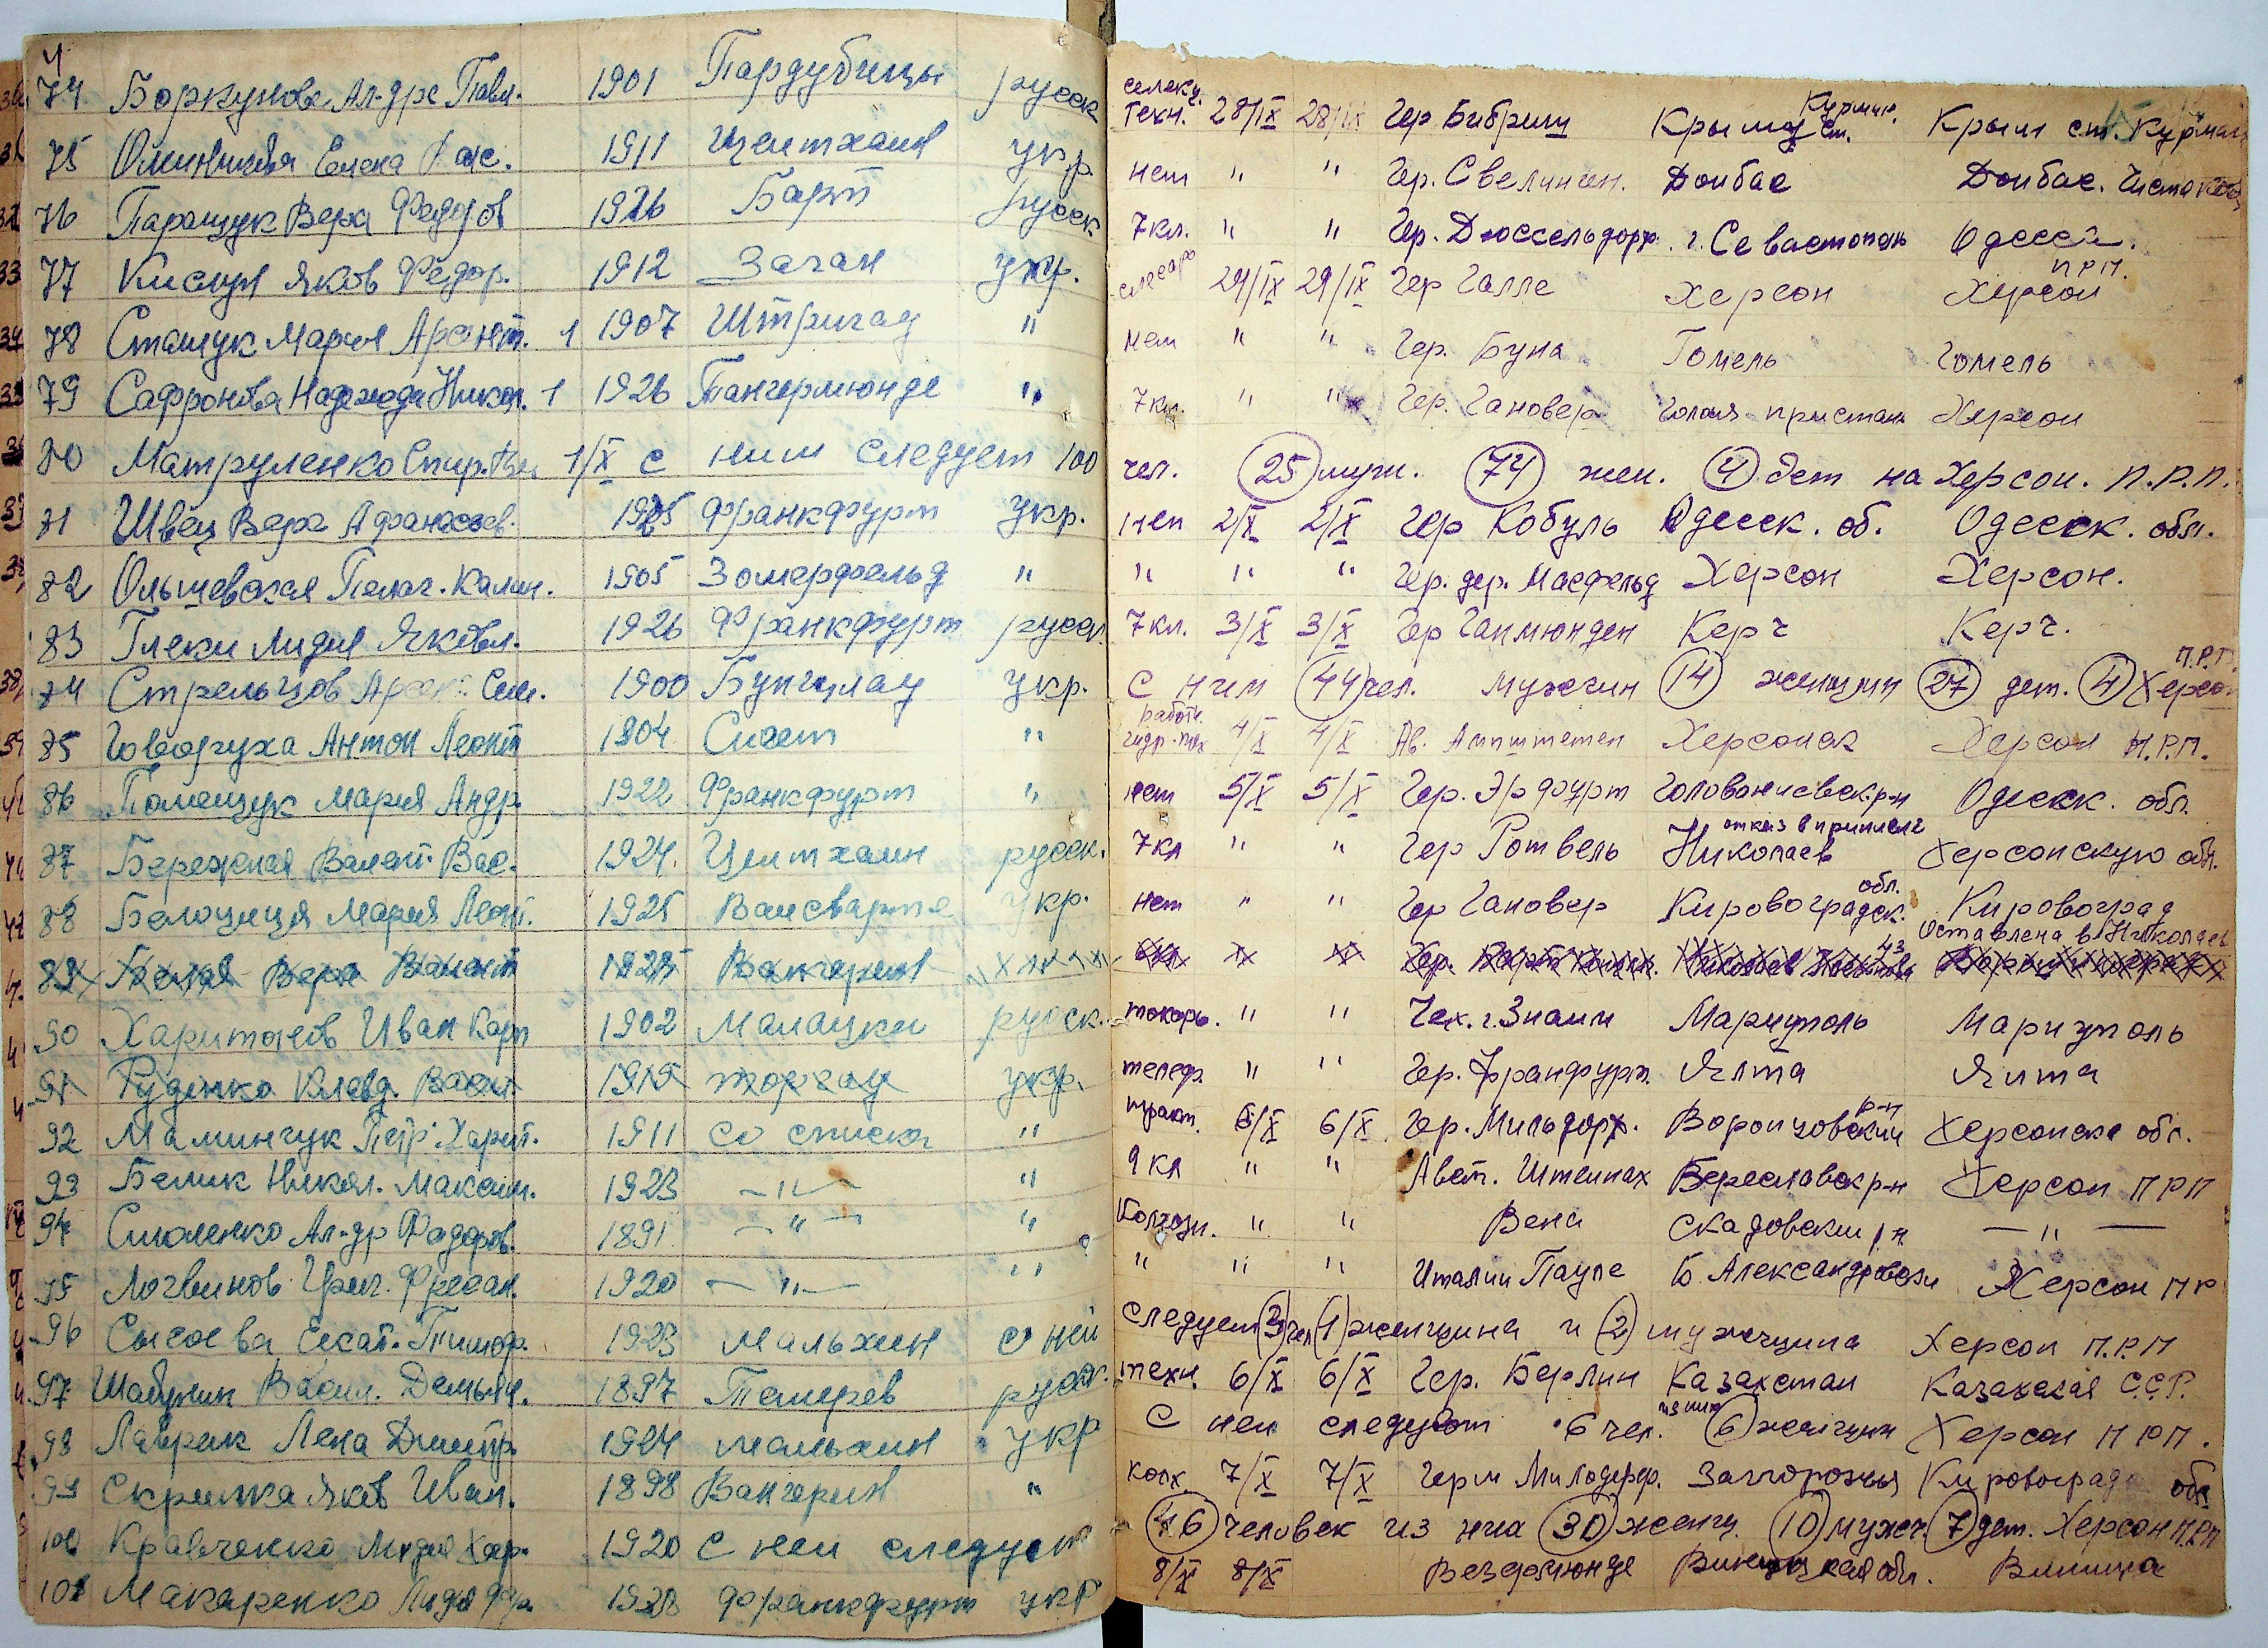 74 Боркунова Ал-дре Павл. 1901 Пардубицы русск техн. 28/IX 28/IX Гер Бибриш Крым ст. Курман. Крым ст. Курман
75 Елена 1911 Цейтхаин укр. нет " " Гер. Свелинген. Донбас Донбас. Чистяков
76 Паращук Вера Федоов 1926 Барт русск 7кл. " " Гер. Дюссельдорф. г. Севастополь Одесса.
77 Кислун Яков Федор. 1912 Заган укр. слесарь 29/IX 29/IX Гер Галле Херсон Херсон П.Р.П.
78 Сташук Мария Арсент. 1 1907 Штригау " нет " " Гер. Буна Гомель Гомель
79 Сафронова Надежда Никол. 1 1926 Тангермюнде " 7кл. " " Гер. Гановер Голая пристань Херсон
80 Матруленко Спир. 1/X с ним следует 100 чел. 25 муж. 74 жен. 4 дет на Херсон. П.Р.П.
81 Швец Вера Афанасьев. 1925 Франкфурт укр. нет 2/X 2/X Гер Кобуль Одесск. об. Одесск. обл.
82 Ольшевская Пелаг. Калин. 1905 Зомерфельд " " " " Гер. дер. Масфельд Херсон Херсон.
83 Глеки Лидия Яковл. 1926 Франкфурт русск 7кл. 3/X 3/X Гер Ганмюнден Керч Керч.
84 Стрельцов Арсен. Сем. 1900 Бунцлау укр. С ним 44 чел. мужчин 14 женщин 27 дет. 4 Херсон П.Р.П.
85 Говоруха Антон Леонт 1904 Сиает " работн. гидр-тех 4/X 4/X Ав. Ампштетен Херсонск Херсон П.Р.П.
86 Помещук Мария Андр. 1922 Франкфурт " нет 5/X 5/X Гер. Эрфурт Голованиевск.р-н Одесск. обл.
87 Бережная Валент. Вас. 1924. Цейтхаин русск. 7кл " " Гер Ротвель Николаев отказ в приписке Херсонскую обл.
88 Белоцица Мария Леонт. 1925 Вансварте укр. нет " " Гер Гановер Кировоградск. обл. Кировоград
89 Белая Вера 1925 Вангерин " " Гер. Николаев Оставлена в г Николаев
90 Харитонов Иван Карп 1902 Малацки русск. токарь. " " Чех. г. Знаим Мариуполь Мариуполь
91 Руденко Клавд. Васил. 1915 торгау укр. телеф. " " Гер. Франфурт. Ялта Ялта
92 Маминчук Петр Харит. 1911 со списка " тракт. 6/X 6/X Гер. Мильдорф. Воронцовский р-н Херсонска обл.
93 Белик Никол. Максим. 1923 — " — " 9кл " " Авст. Штейнах Береславск р-н Херсон П Р П
94 Смоленко Ал-др Федоров. 1891 — " — " Колхозн. " " Вена Скадовски р.н. — " —
95 Логвинов Григ. 1920 — " — " " " " Италии Пауле Б. Александровски Херсон П Р
96 Сысоева Екат. Тимоф. 1923 Мальхин с ней следует 3 чел 1 женщина и 2 мужчина Херсон П.Р.П
97 Шабунин Васил. Демьян. 1897 Темерев русск. техн. 6/X 6/X Гер. Берлин Казахстан Казахская С.С.Р.
98 Лаврик Лена Дмитр. 1924 мальхин укр С ней следуют 6 чел. из них 6 женщин Херсон П Р П.
99 Скрипка Яков Иван. 1898 Вангерин " колх. 7/X 7/X Герм Милодорф. Запорожья Кировоград обл
100 Кравченко Мария Хар. 1920 С ней следуют 46 человек из них 30 женщ. 10 мужч. 7 дет. Херсон П.Р.П
101 Макаренко Лидия Фр. 1928 Франкфурт укр 8/X 8/X Везермюнде Винницкая обл. Винница